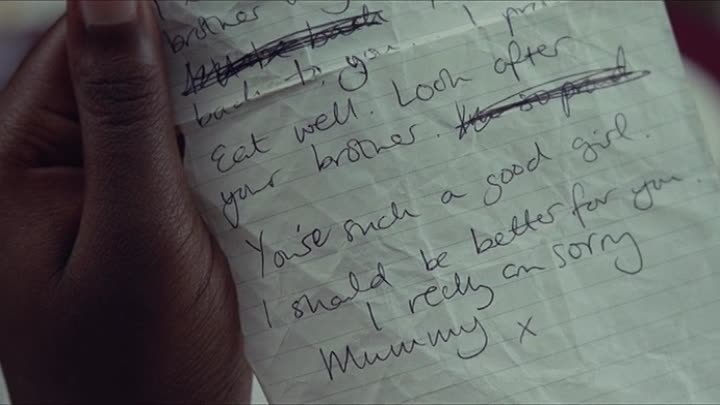 brother
back to you.. I
Eat well. Look after
your brother.
You're such a good girl.
I should be better for you.
I really am sorry
Mummy x